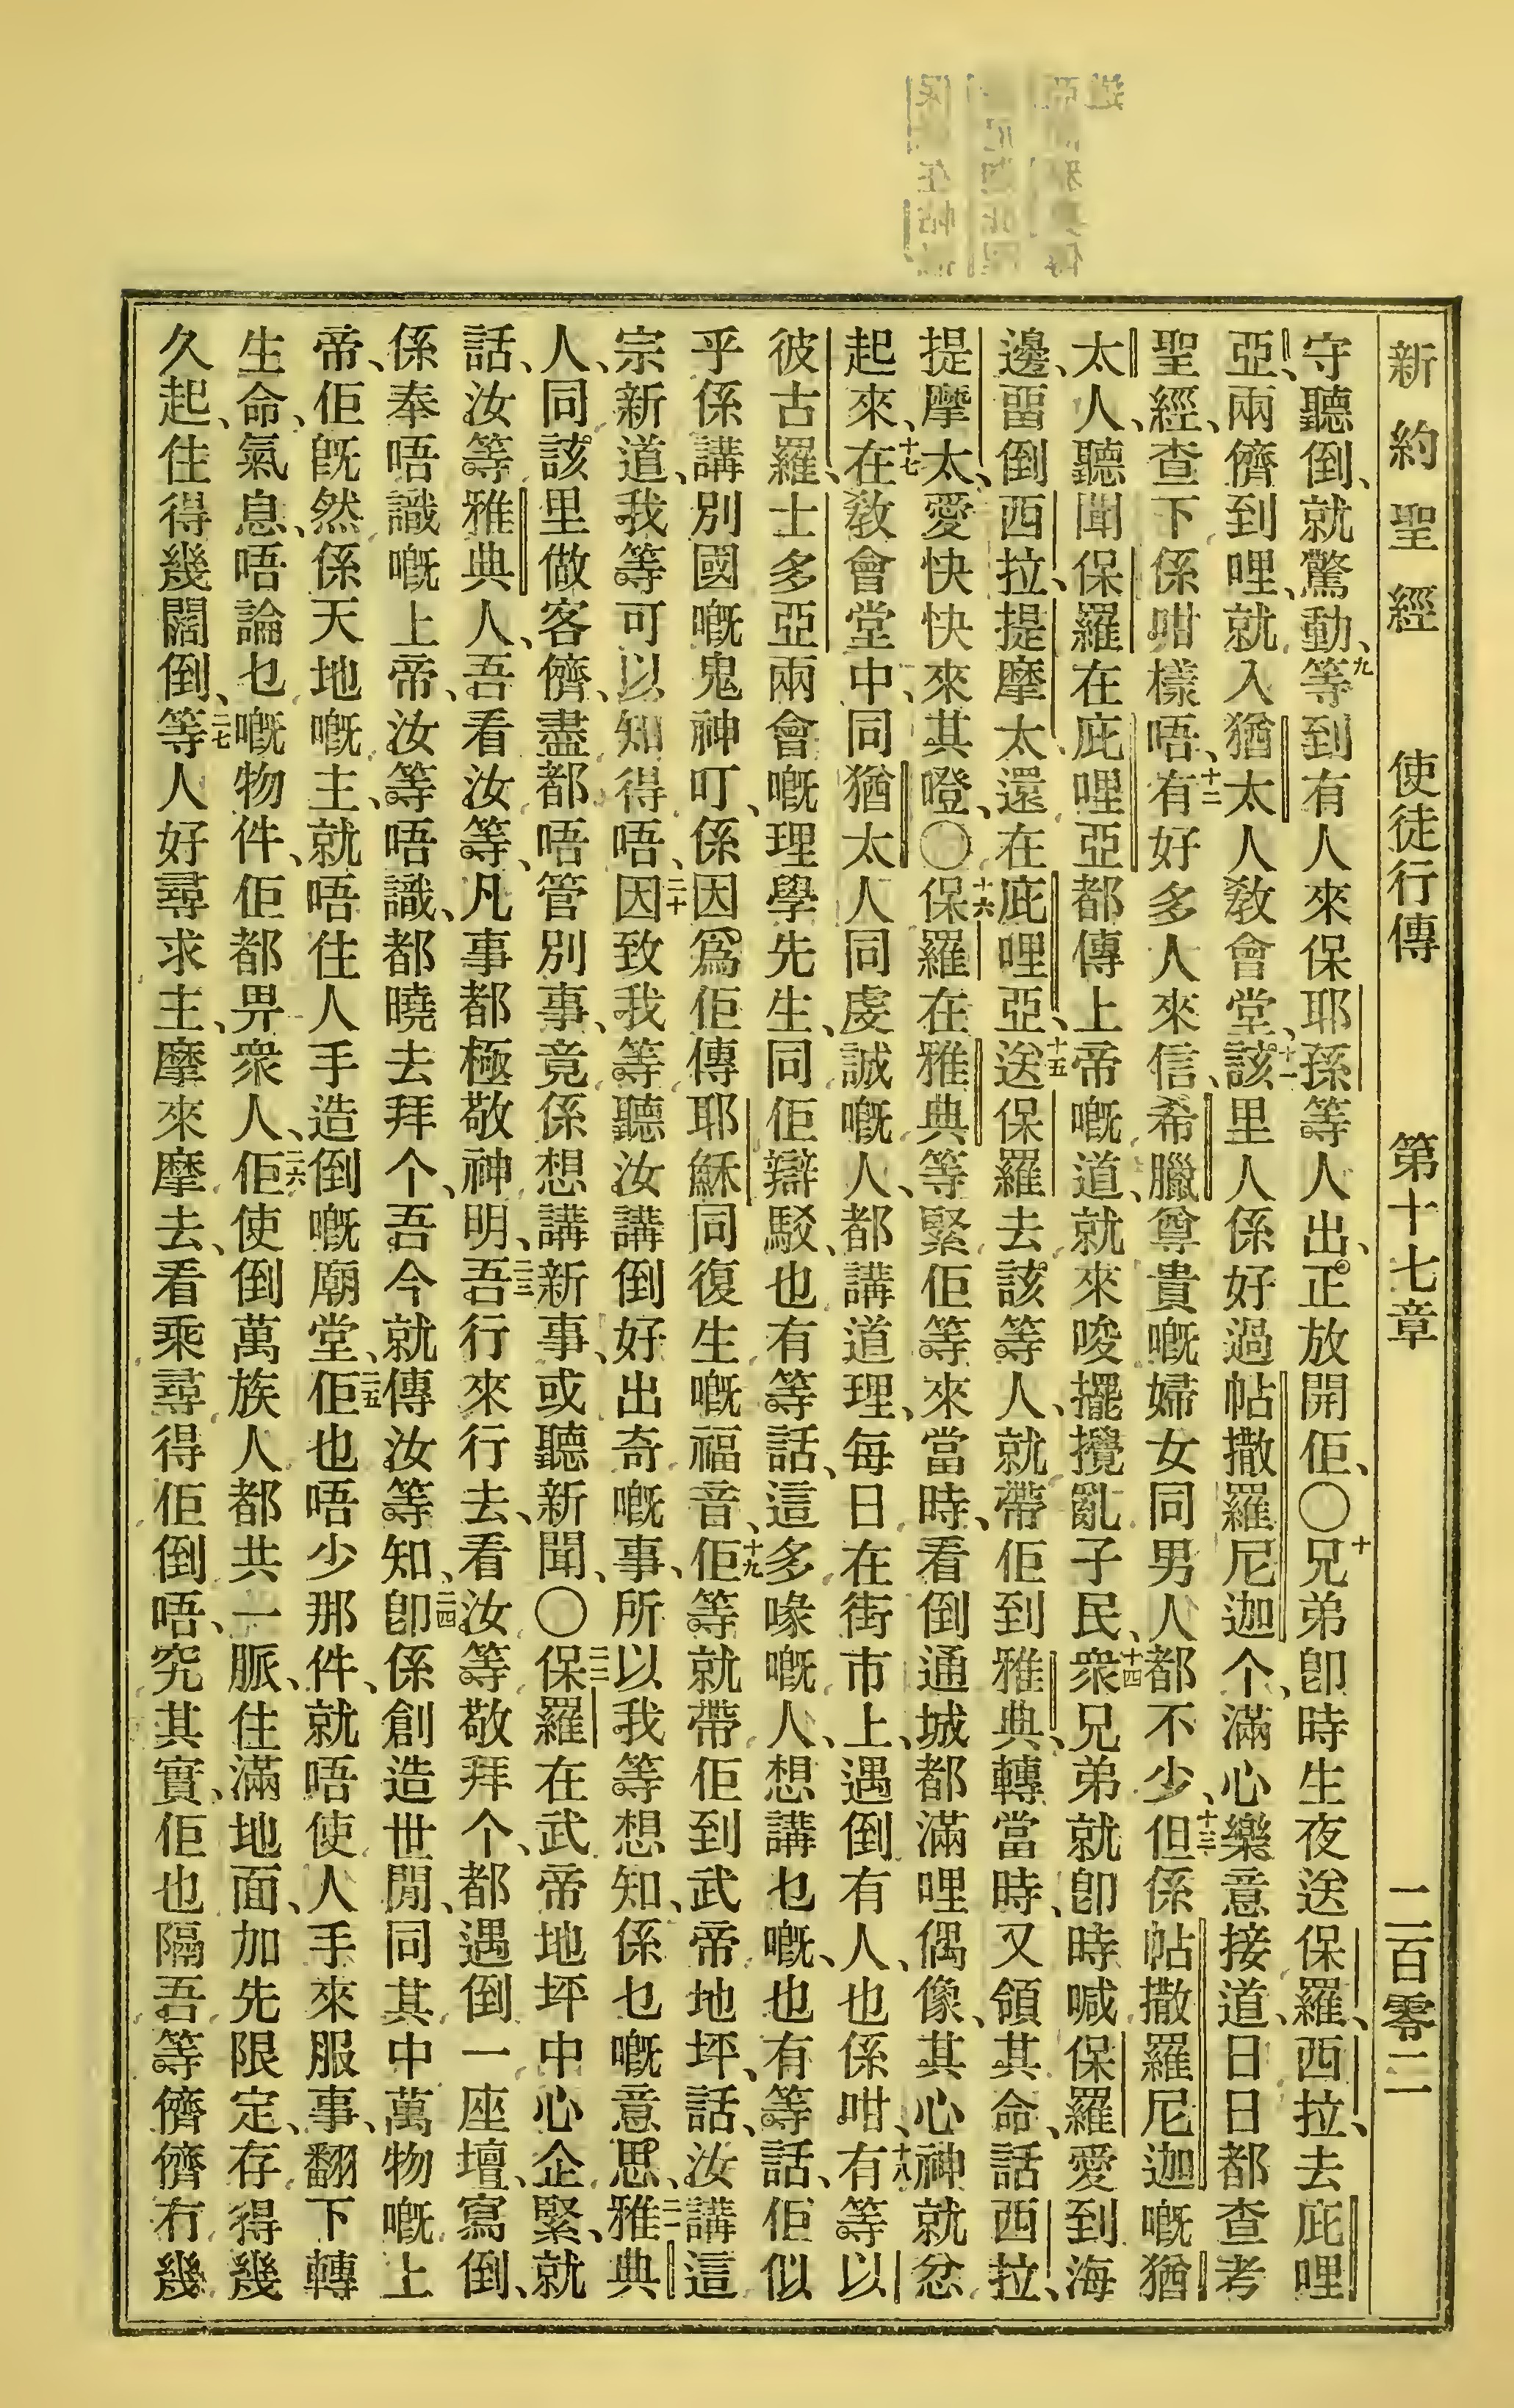 新約聖經　使徒行傳　第十七章　二百零二
守聽倒、就驚動、九等到有人來保耶孫等人出、正放開佢、〇十兄弟卽時生夜送保羅、西拉、去庇哩
亞、兩儕到哩、就入猶太人敎會堂、十一該里人係好過帖撒羅尼迦个、滿心樂意接道、日日都查考
聖經、查下係咁樣唔、十二有好多人來信、希臘尊貴嘅婦女同男人都不少、十三但係帖撒羅尼迦嘅猶
太人、聽聞保羅在庇哩亞都傳上帝嘅道、就來唆擺攪亂子民、十四衆兄弟就卽時喊保羅愛到海
邊、畱倒西拉、提摩太、還在庇哩亞、十五送保羅去該等人、就帶佢到雅典、轉當時、又領其命、話西拉、
提摩太、愛快快來其嶝、〇十六保羅在雅典等緊佢等來當時、看倒通城都滿哩偶像、其心神就忿
起來、十七在敎會堂中、同猶太人同虔誠嘅人、都講道理、每日在街市上、遇倒有人、也係咁、十八有等以
彼古羅、士多亞兩會嘅理學先生、同佢辯駁、也有等話、這多喙嘅人、想講乜嘅、也有等話、佢似
乎係講別國嘅鬼神叮、係因爲佢傳耶穌同復生嘅福音、十九佢等就帶佢到武帝地坪、話、汝講這
宗新道、我等可以知得唔、二十因致我等聽汝講倒好出奇嘅事、所以我等想知、係乜嘅意思、二一雅典
人、同該里做客儕、盡都唔管別事、竟係想講新事、或聽新聞、〇二二保羅在武帝地坪中心企緊、就
話、汝等雅典人、吾看汝等、凡事都極敬神明、二三吾行來行去、看汝等敬拜个、都遇倒一座壇、寫倒、
係奉唔識嘅上帝、汝等唔識、都曉去拜个、吾今就傳汝等知、二四卽係創造世閒、同其中萬物嘅上
帝、佢旣然係天地嘅主、就唔住人手造倒嘅廟堂、二五佢也唔少那件、就唔使人手來服事、翻下轉
生命、氣息、唔論乜嘅物件、佢都畀衆人、二六佢使倒萬族人都共一脈、住滿地面、加先限定、存得幾
久起、住得幾闊倒、二七等人好尋求主、摩來摩去、看乘尋得佢倒唔、究其實、佢也隔吾等儕儕冇幾